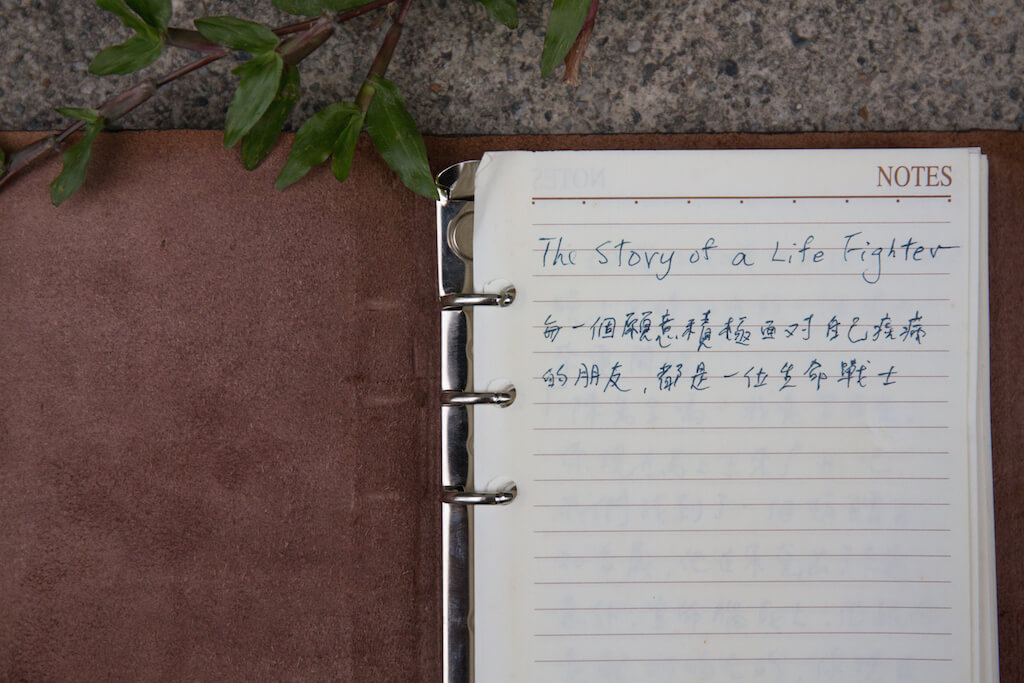 NOTES
The Story of a Life Fighter
每一個願意積極面對自己疾病
的朋友，都是一位生命戰士